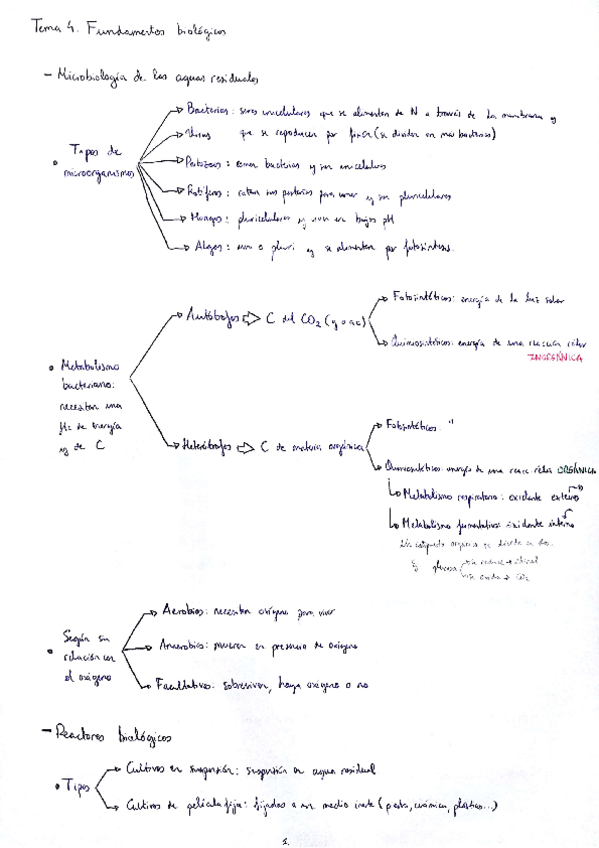 Tema 4. Fundamentos biológicos
- Microbiología de las aguas residuales
• Tipos de microorganismos
Bacterias: seres unicelulares que se alimentan de N a través de la membrana y
que se reproducen por (se dividen en más bacterias)
Virus
Protozoos: comen bacterias y son unicelulares
Rotíferos: rotan sus para comer y son pluricelulares
Hongos: pluricelulares y viven en bajos pH
Algas: uni o pluri y se alimentan por fotosíntesis.
• Metabolismo bacteriano: necesitan una fte de energía y de C
Autótrofos ⇒ C del CO2 (g o ac)
Fotosintéticos: energía de la luz solar
Quimiosintéticos: energía de una reacción rédox
INORGÁNICA
Heterótrofos ⇒ C de materia orgánica
Fotosintéticos: "
Quimiosintéticos: energía de una reacc rédox ORGÁNICA
Metabolismo respiratorio: oxidante externo
Metabolismo fermentativo: oxidante interno
Un compuesto orgánico se divide en dos.
glucosa se reduce → etanol
se oxida → CO2
• Según su relación con el oxígeno
Aerobios: necesitan oxígeno para vivir
Anaerobios: mueren en presencia de oxígeno
Facultativos: sobreviven, haya oxígeno o no
- Reactores biológicos
• Tipos
Cultivos en suspensión: suspensión en agua residual
Cultivos de película fija: fijados a un medio inerte (piedra, cerámica, plásticos...)
1.